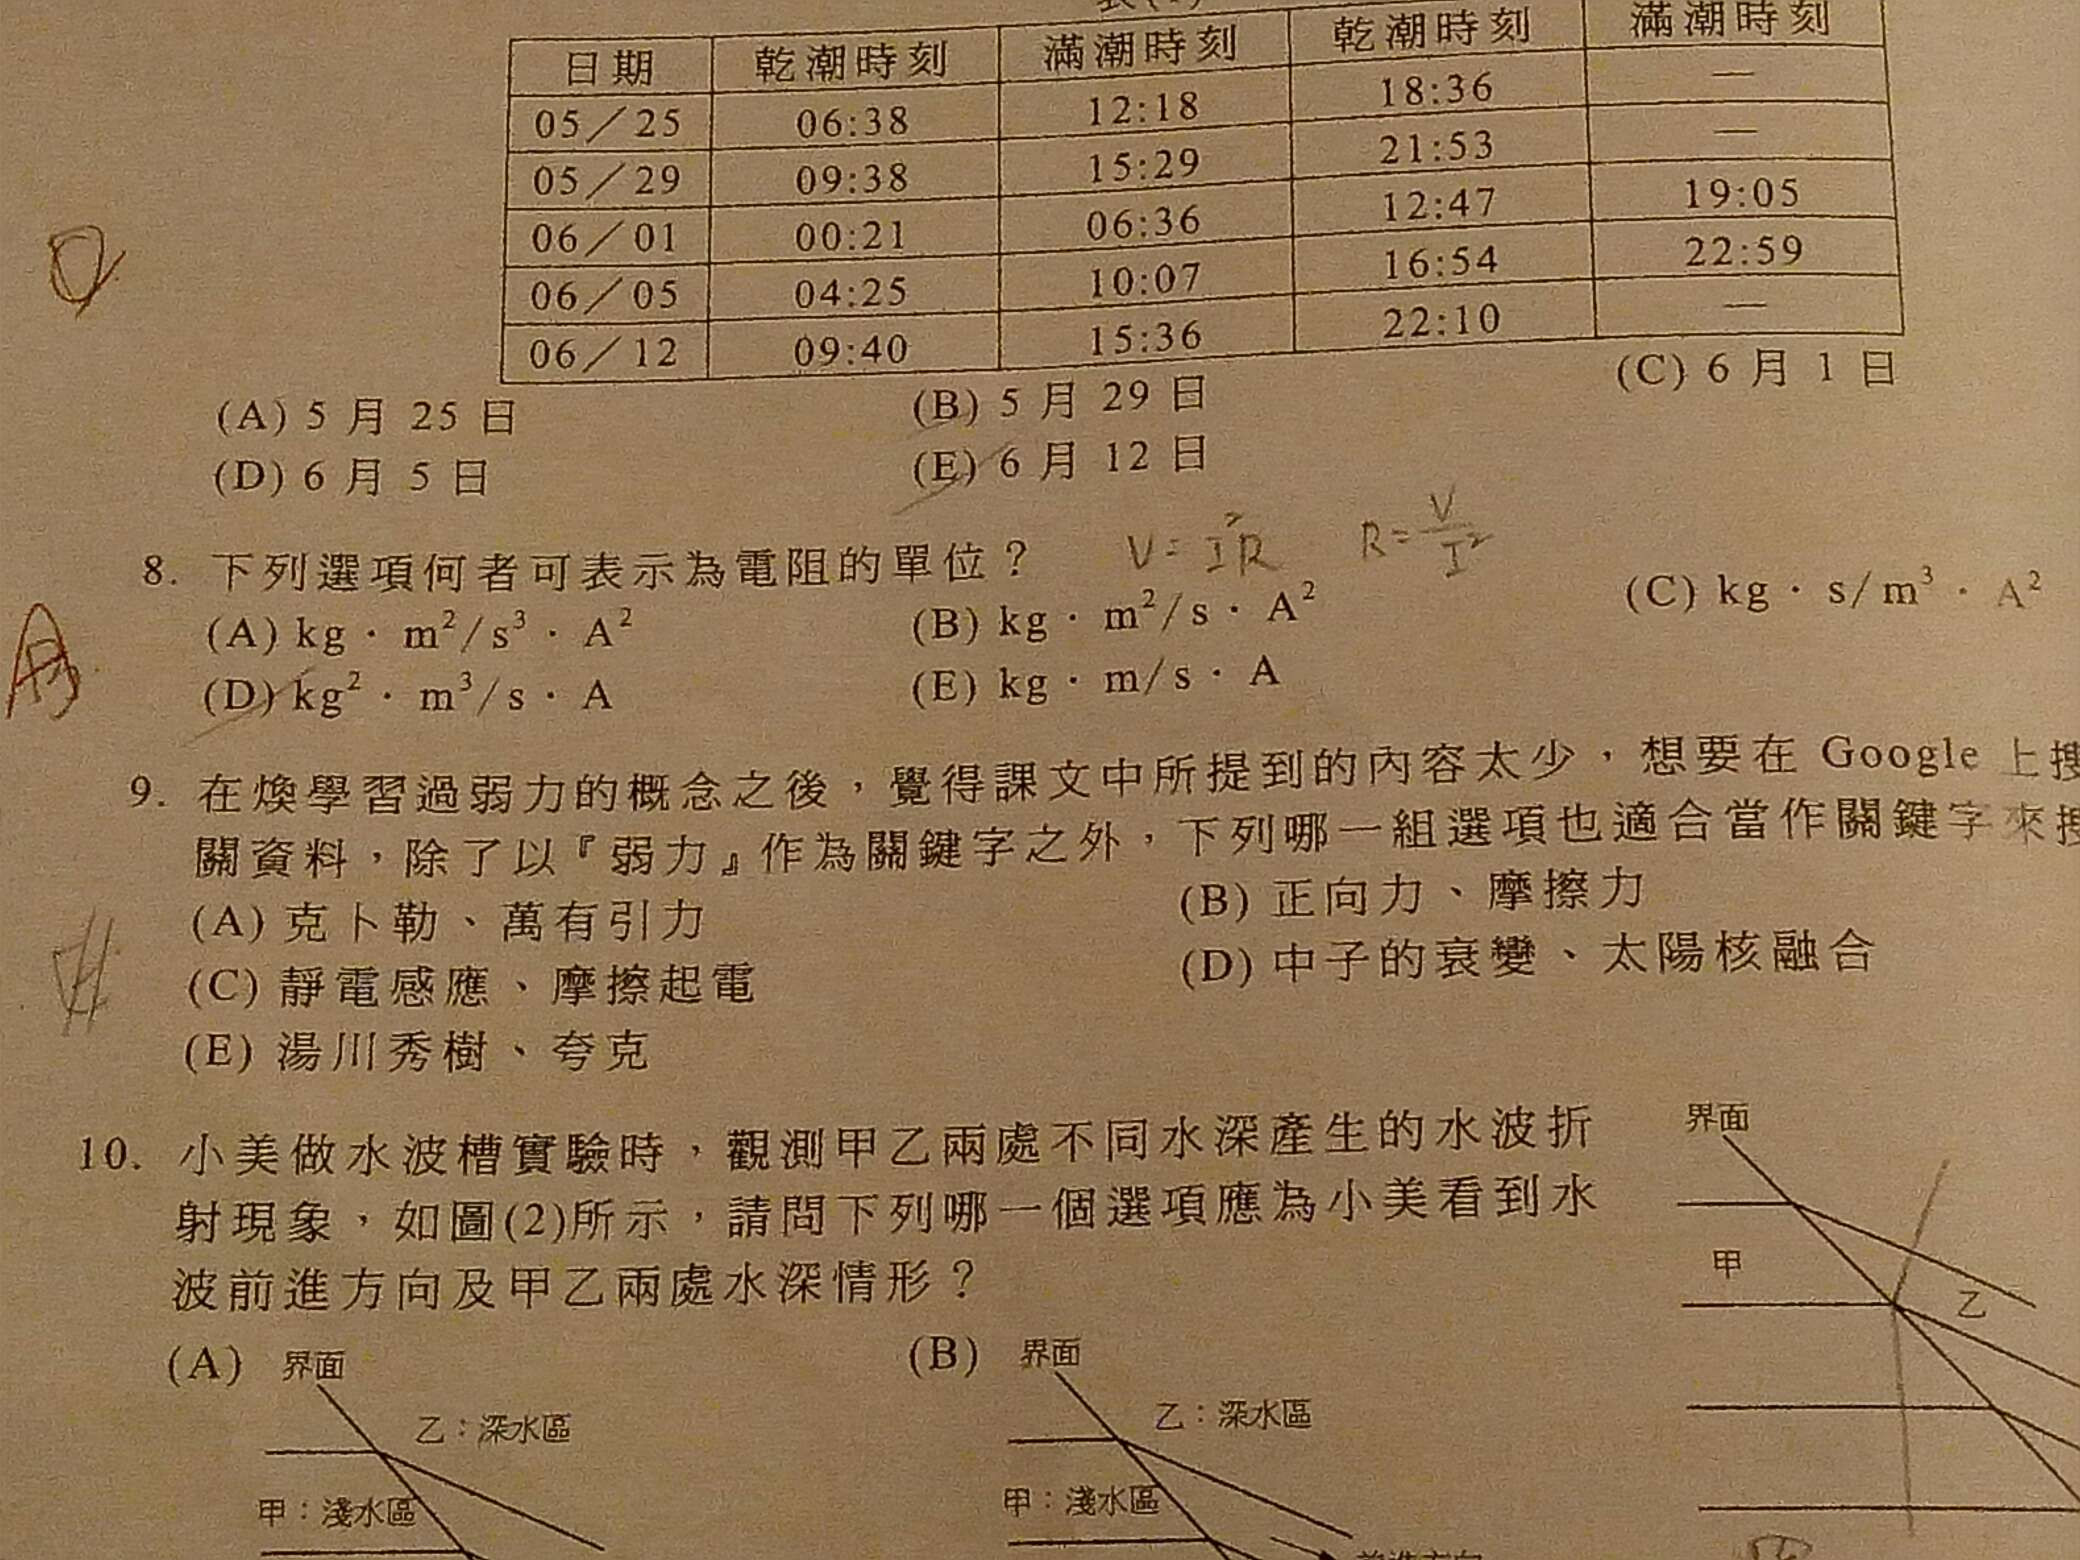 日期 乾潮時刻 滿潮時刻 乾潮時刻 滿潮時刻
05／25 06:38 12:18 18:36 —
05／29 09:38 15:29 21:53 —
06／01 00:21 06:36 12:47 19:05
06／05 04:25 10:07 16:54 22:59
06／12 09:40 15:36 22:10 —
(A) 5 月 25 日 (B) 5 月 29 日 (C) 6 月 1 日
(D) 6 月 5 日 (E) 6 月 12 日
8. 下列選項何者可表示為電阻的單位？ V = I²R R = V/I²
(A) kg · m²/s³ · A² (B) kg · m²/s · A² (C) kg · s/m³ · A²
(D) kg² · m³/s · A (E) kg · m/s · A
9. 在煥學習過弱力的概念之後，覺得課文中所提到的內容太少，想要在 Google 上搜
關資料，除了以『弱力』作為關鍵字之外，下列哪一組選項也適合當作關鍵字來搜
(A) 克卜勒、萬有引力 (B) 正向力、摩擦力
(C) 靜電感應、摩擦起電 (D) 中子的衰變、太陽核融合
(E) 湯川秀樹、夸克
10. 小美做水波槽實驗時，觀測甲乙兩處不同水深產生的水波折
射現象，如圖(2)所示，請問下列哪一個選項應為小美看到水
波前進方向及甲乙兩處水深情形？
界面
甲
乙
(A) 界面
乙：深水區
甲：淺水區
(B) 界面
乙：深水區
甲：淺水區